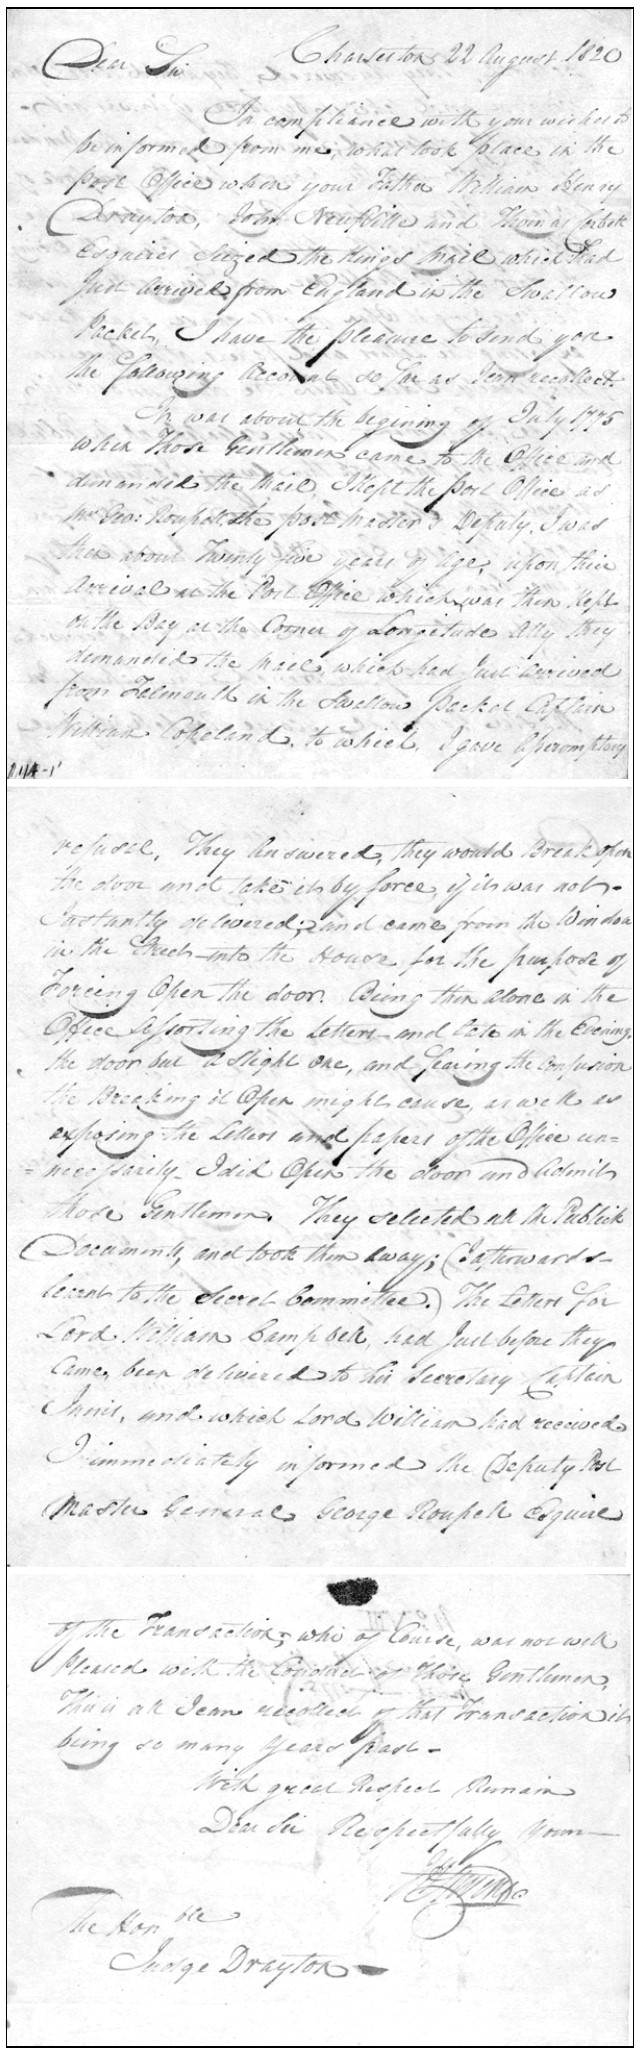 Charleston 22 August 1820
Dear Sir
In compliance with your wishes to
be informed from me, what took place in the
Post Office when your Father William Henry
Drayton, John Neufville and Thomas Corbett
Esquires Seized the Kings Mail which had
Just Arrived from England in the Swallow
Packet, I have the pleasure to send you
the following Account so far as I can recollect.
It was about the begining of July 1775
when Those Gentlemen came to the Office and
demanded the Mail, I kept the Post Office as
Mr Geo: Roupell, the post Master's Deputy, I was
then about Twenty five years of Age, upon their
Arrival at the Post Office which was then kept
on the Bay at the Corner of Longitude Ally they
demanded the Mail, which had Just Arrived
from Falmouth in the Swallow Packet Captain
William Copeland, to which, I gave A peromptory
refusal, They Answered, they would Break open
the door and take it by force, if it was not
Instantly delivered; and came from the Window
in the Street into the House for the purpose of
Forcing Open the door. Being then Alone in the
Office Assorting the Letters and late in the Evening,
the door but a slight one, and fearing the Confusion
the Breaking it Open might cause, as well as
exposing the Letters and papers of the Office un=
=necessarily I did Open the door and Admit
those Gentlemen. They selected all the Publick
Documents, and took them Away; (Afterwards
sent to the Secret Committee.) The Letters for
Lord William Campbell, had Just before they
Came, been delivered to his Secretary Captain
Innis, and which Lord William had received
I immediately informed the Deputy Post
Master General George Roupell Esquire
of the Transaction; who of Course, was not well
Pleased with the Conduct of Those Gentlemen,
This is all I can recollect of that Transaction it
being so many Years past
With great Respect Remain
Dear Sir Respectfully Yours
The Honble
Judge Drayton